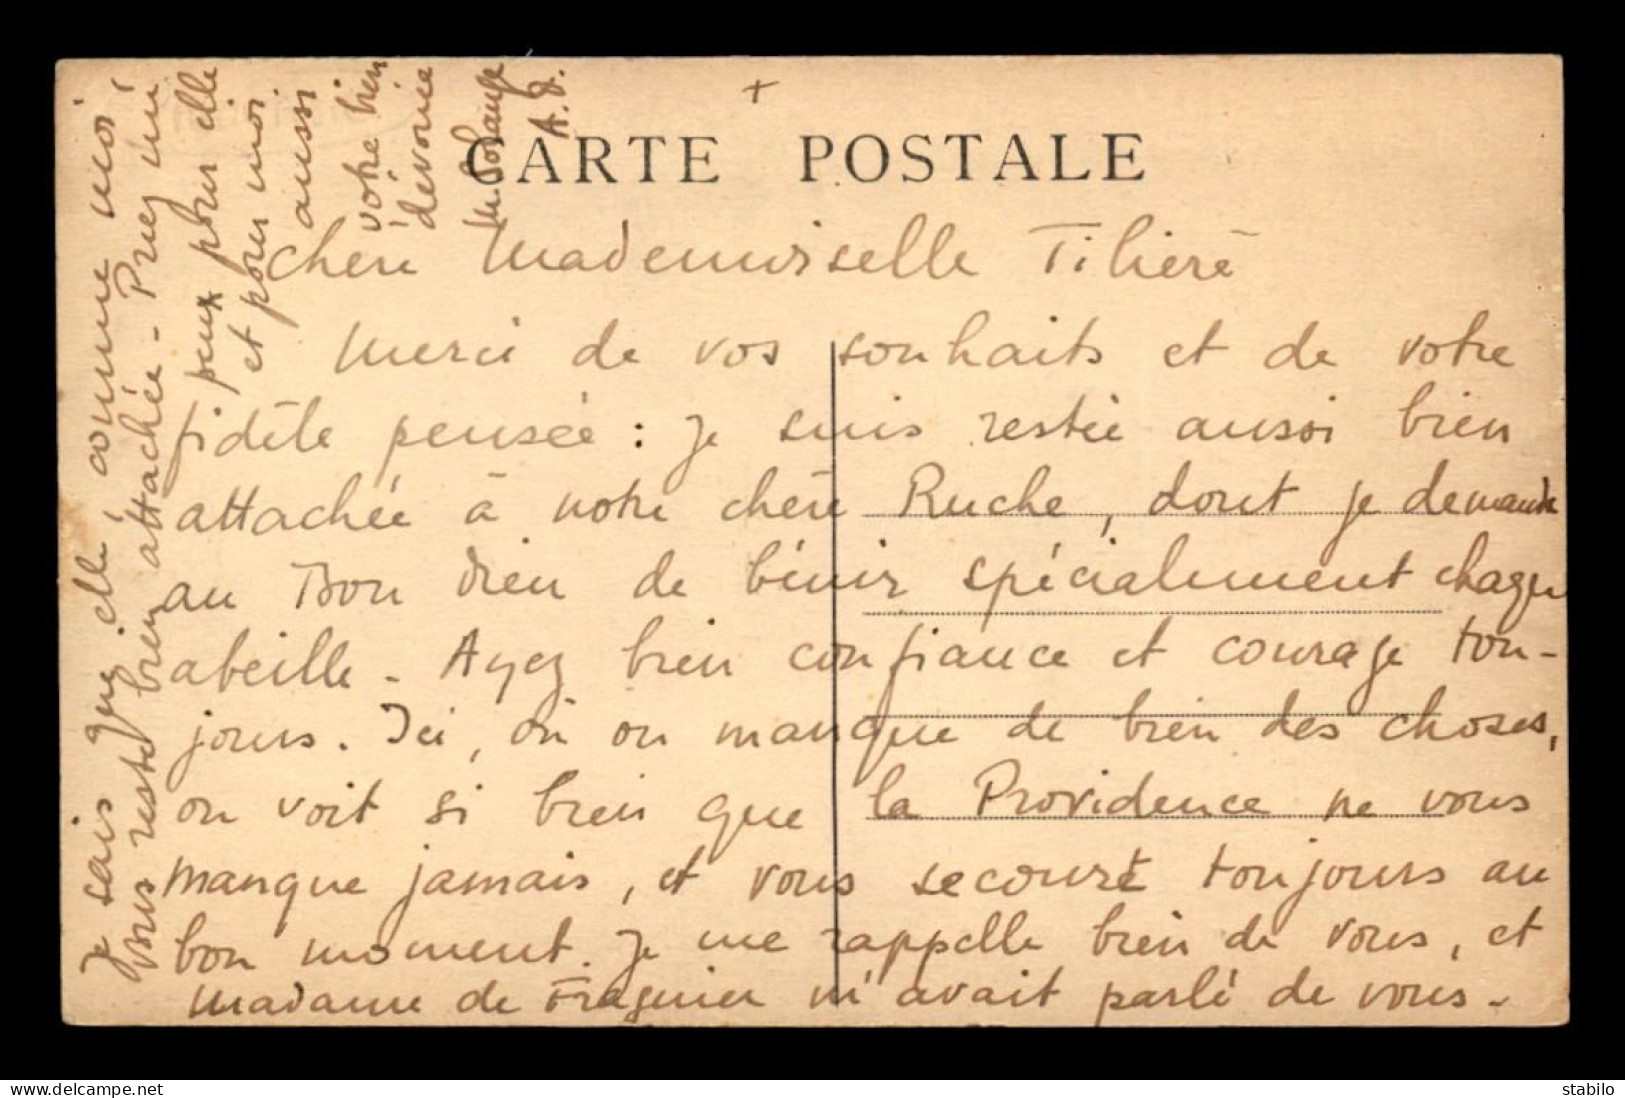 +
CARTE POSTALE
Chère Mademoiselle Tilière
Merci de vos souhaits et de votre
fidèle pensée : je suis restée aussi bien
attachée à notre chère Ruche, dont je demande
au Bon Dieu de bénir spécialement chaque
abeille - Ayez bien confiance et courage tou-
jours. Ici, où on manque de bien des choses,
on voit si bien que la Providence ne vous
manque jamais, et vous secourt toujours au
bon moment. Je me rappelle bien de vous, et
Madame de Fraguier m'avait parlé de vous -
Je sais que elle, comme moi
vous reste bien attachée - Priez un
peux pour elle
et pour moi
aussi
votre bien
dévouée
M. Solange
A. d.
www.delcampe.net
stabilo